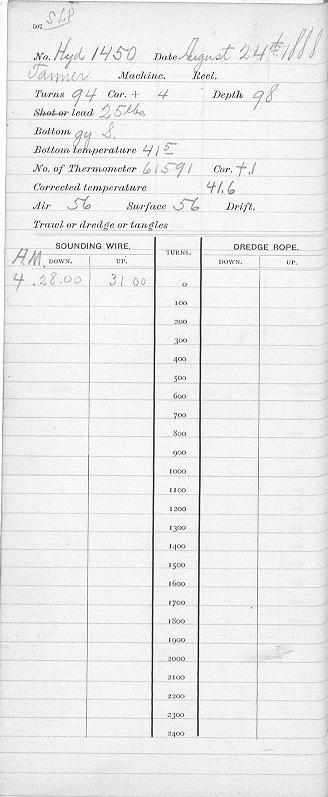 507 SLP
No. Hyd 1450 Date August 24th 1888
Tanner Machine. Reel.
Turns 94 Cor. + 4 Depth 98
Shot or lead 25 lbs.
Bottom gy S.
Bottom temperature 41 5
No. of Thermometer 61591 Cor. +.1
Corrected temperature 41.6
Air 56 Surface 56 Drift.
Trawl or dredge or tangles
SOUNDING WIRE. TURNS. DREDGE ROPE.
A.M. DOWN. UP. DOWN. UP.
4 .28.00 31 00 0
100
200
300
400
500
600
700
800
900
1000
1100
1200
1300
1400
1500
1600
1700
1800
1900
2000
2100
2200
2300
2400